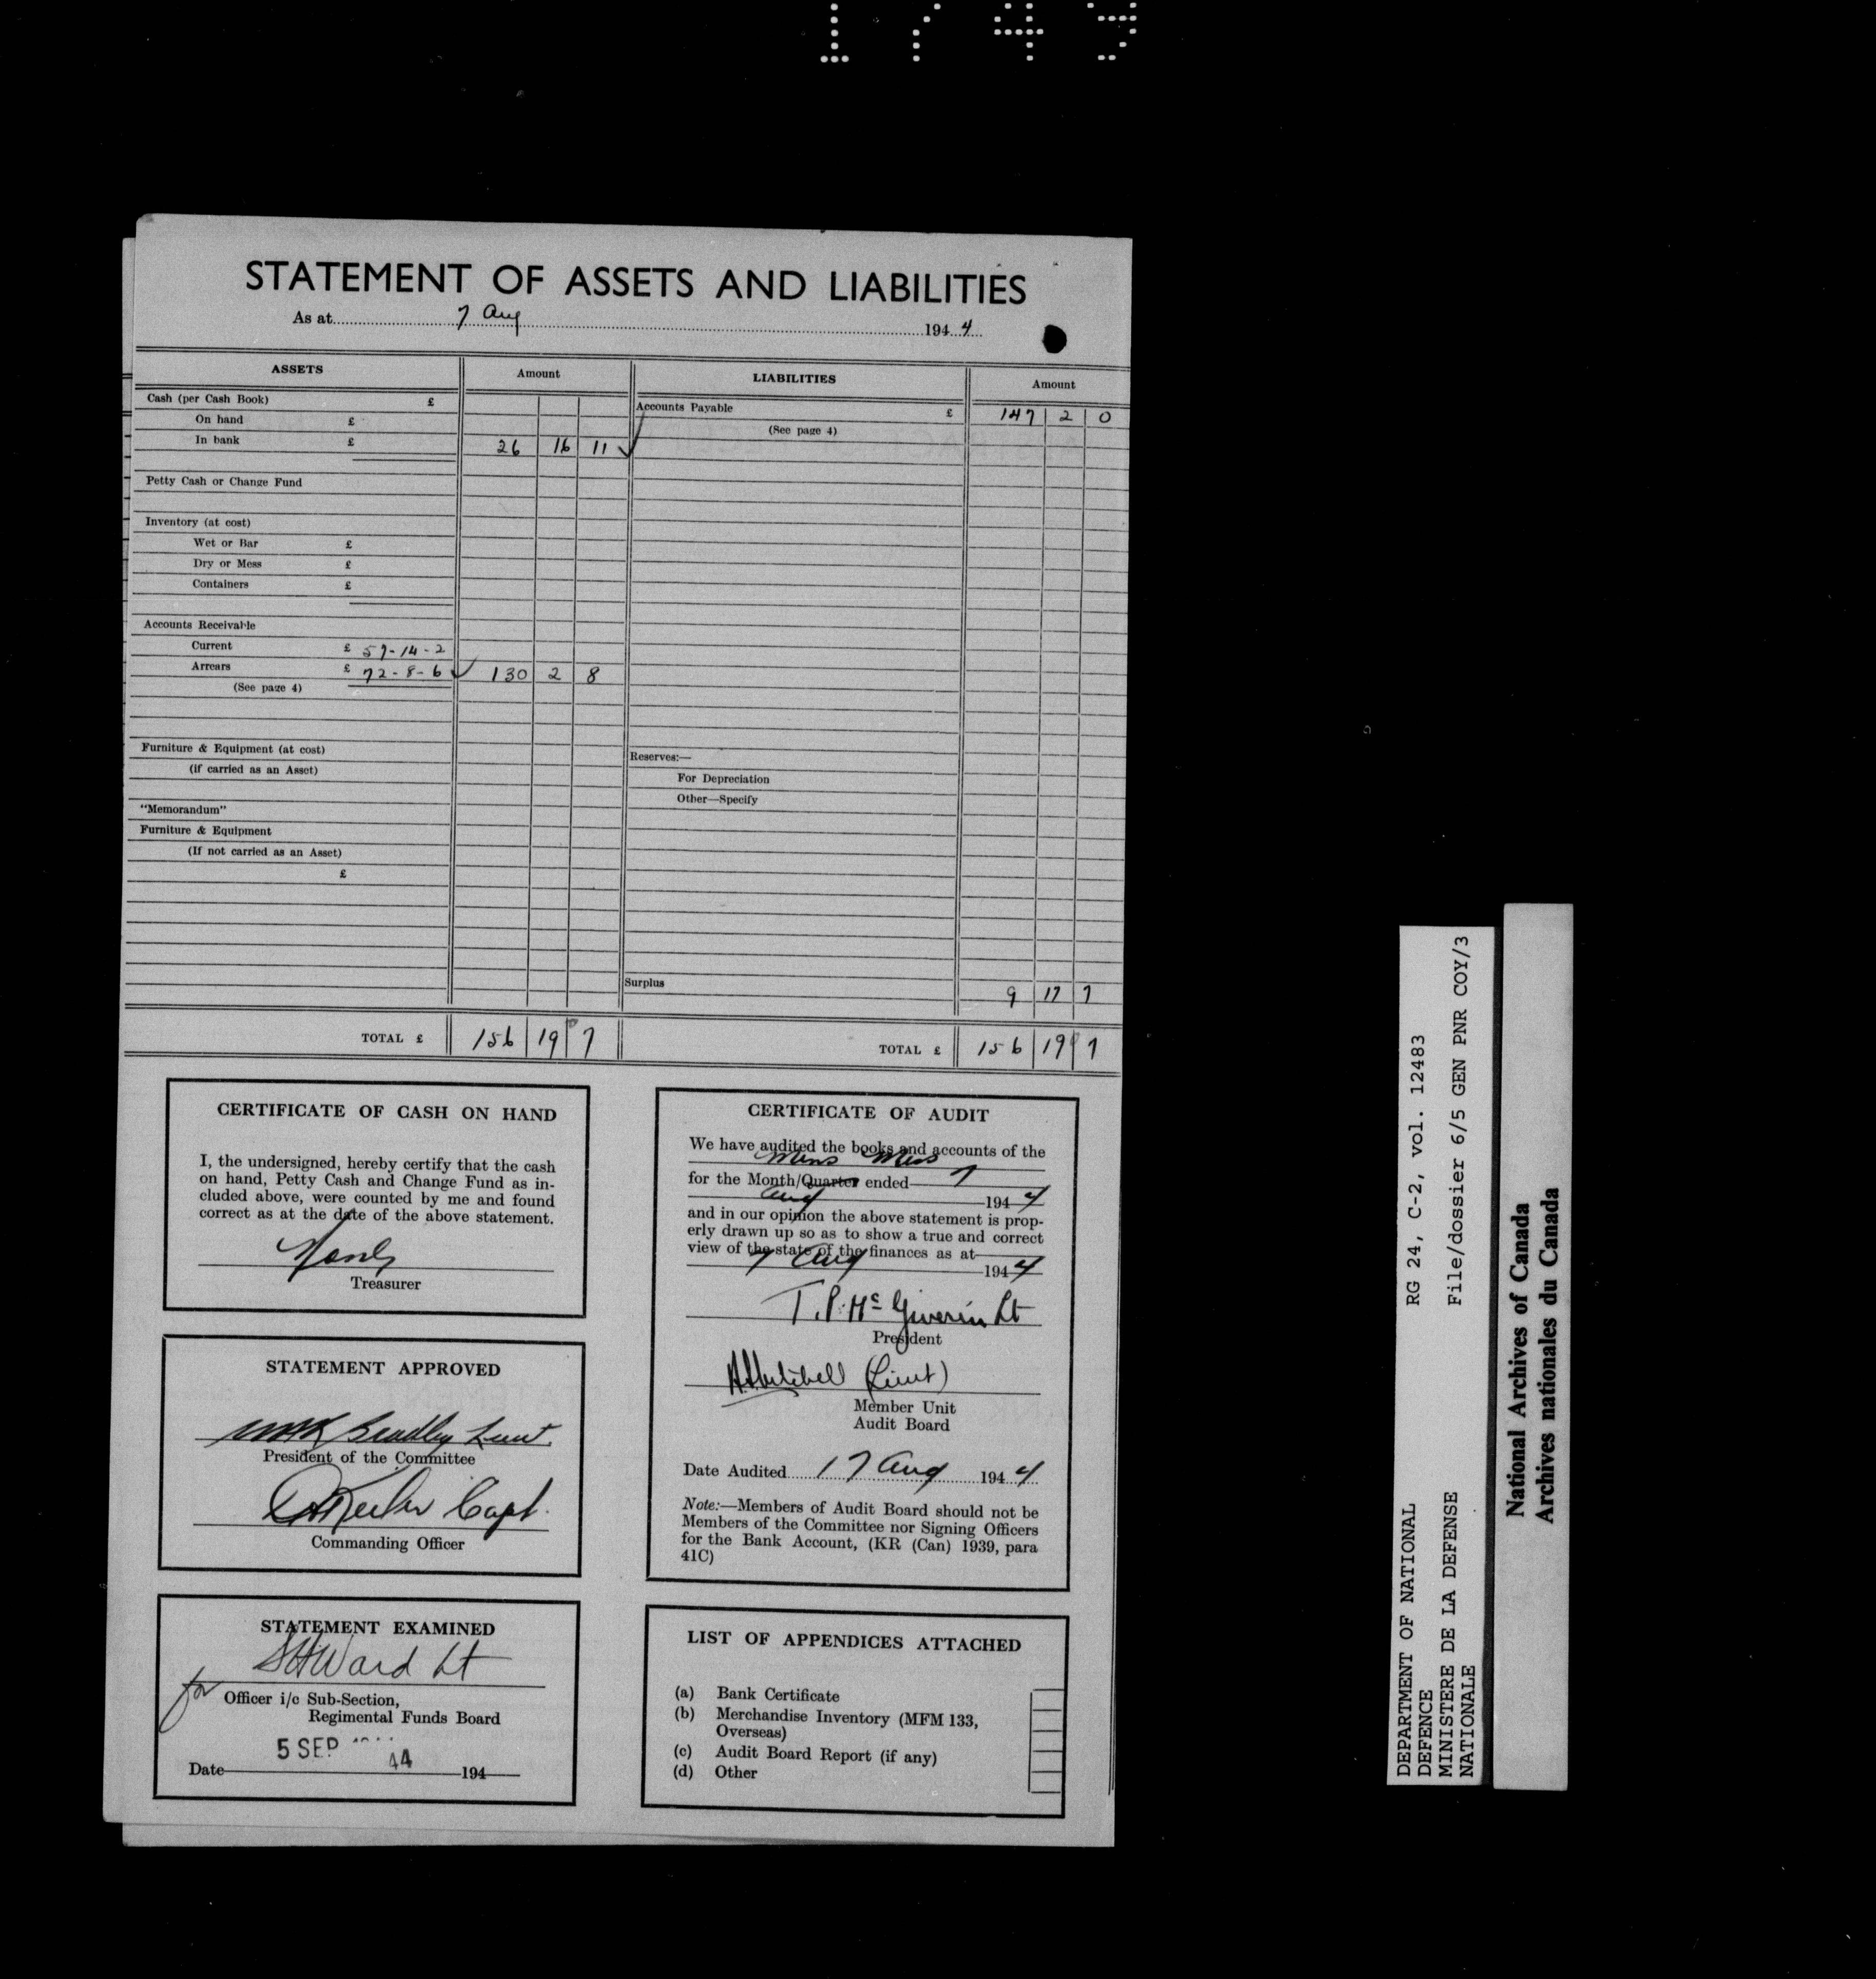 1749
STATEMENT OF ASSETS AND LIABILITIES
As at 7 Aug 1944
ASSETS Amount LIABILITIES Amount
Cash (per Cash Book) £ Accounts Payable £ 147 2 0
On hand £ (See page 4)
In bank £ 26 16 11 ✓
Petty Cash or Change Fund
Inventory (at cost)
Wet or Bar £
Dry or Mess £
Containers £
Accounts Receivable
Current £ 57-14-2
Arrears £ 72-8-6 ✓ 130 2 8
(See page 4)
Furniture & Equipment (at cost) Reserves:—
(if carried as an Asset) For Depreciation
Other—Specify
"Memorandum"
Furniture & Equipment
(If not carried as an Asset)
£
Surplus 9 17 7
TOTAL £ 156 19 7 TOTAL £ 156 19 7
CERTIFICATE OF CASH ON HAND
I, the undersigned, hereby certify that the cash
on hand, Petty Cash and Change Fund as in-
cluded above, were counted by me and found
correct as at the date of the above statement.
Treasurer
STATEMENT APPROVED
Bradley Lieut.
President of the Committee
Capt.
Commanding Officer
STATEMENT EXAMINED
Ward Lt
for Officer i/c Sub-Section,
Regimental Funds Board
5 SEP 44
Date 194
CERTIFICATE OF AUDIT
We have audited the books and accounts of the
Mens Mess
for the Month/Quarter ended 7
Aug 1944
and in our opinion the above statement is prop-
erly drawn up so as to show a true and correct
view of the state of the finances as at
7 Aug 1944
T.P. McGiverin Lt
President
(Lieut)
Member Unit
Audit Board
Date Audited 17 Aug 1944
Note:—Members of Audit Board should not be
Members of the Committee nor Signing Officers
for the Bank Account, (KR (Can) 1939, para
41C)
LIST OF APPENDICES ATTACHED
(a) Bank Certificate
(b) Merchandise Inventory (MFM 133,
Overseas)
(c) Audit Board Report (if any)
(d) Other
DEPARTMENT OF NATIONAL RG 24, C-2, vol. 12483
DEFENCE
MINISTERE DE LA DEFENSE File/dossier 6/5 GEN PNR COY/3
NATIONALE
National Archives of Canada
Archives nationales du Canada